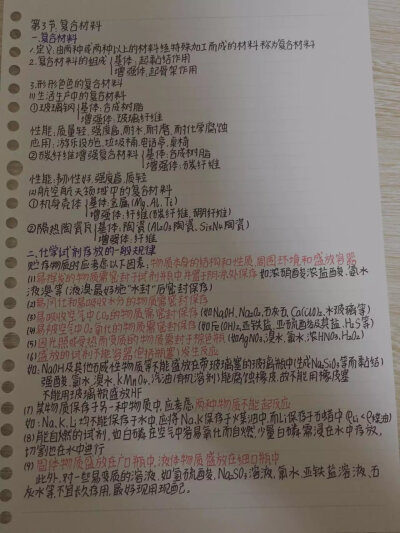 第3节.复合材料
一.复合材料
1.定义:由两种或两种以上的材料经特殊加工而成的材料称为复合材料
2.复合材料的组成 基体:起黏结作用
增强体:起骨架作用
3.形形色色的复合材料
(1)生活生产中的复合材料
①玻璃钢 基体:合成树脂
增强体:玻璃纤维
性能:质量轻,强度高,耐水,耐磨,耐化学腐蚀
应用:游乐设施,垃圾桶,电话亭,桌椅
②碳纤维增强复合材料 基体:合成树脂
增强体:碳纤维
性能:韧性好,强度高,质轻
(2)航空航天领域中的复合材料
①机身壳体 基体:金属(Mg,Al,Ti)
增强体:纤维(碳纤维,硼纤维)
②隔热陶瓷瓦 基体:陶瓷(Al₂O₃,Si₃N₄陶瓷)
增强体:纤维
二.化学试剂存放的一般规律
贮存物质时应考虑以下因素:物质本身的结构和性质,周围环境和盛放容器
(1)易挥发的物质需密封于试剂瓶中并置于阴凉处保存 如浓硝酸,浓盐酸,氨水
液溴等(液溴最好地"水封"后密封保存)
(2)易风化和易吸收水分的物质需密封保存
(3)易吸收空气中CO₂的物质需密封保存(如NaOH,Na₂O₂,石灰石,Ca(ClO)₂,水玻璃等)
(4)易被空气中O₂氧化的物质需密封保存(如Fe(OH)₂,亚铁盐,亚硫酸及其盐,H₂S等)
(5)因光照或受热而变质的物质需盛于棕色瓶(如AgNO₃,溴水,氯水,浓HNO₃,H₂O₂)
(6)盛放的试剂不能容器(包括瓶塞)发生反应
如:NaOH及其他碱性物质等不能盛放在带玻璃塞的玻璃瓶中(生成Na₂SiO₃等而黏结)
强酸,氯水,溴水,KMnO₄,浅油(有机溶剂)能腐蚀橡皮,故不能用橡皮塞
不能用玻璃瓶盛放HF
(7)某物质保存于另一种物质中,应考虑:两种物质不能起反应
如:Na,K,Li均不能保存于水中,应将Na,K保存于煤油中,而Li保存于石蜡中(ρLi<ρ煤油)
(8)能自燃的试剂,如白磷在空气中容易氧化而自燃,少量白磷需浸在水中存放,
切割也在水中进行
(9)固体物质盛放在广口瓶中,液体物质盛放在细口瓶中
此外,对一些易变质的溶液,如氢硫酸,Na₂SO₃溶液,氯水,亚铁盐溶液,石
灰水等不宜长久存用,最好现用现配。